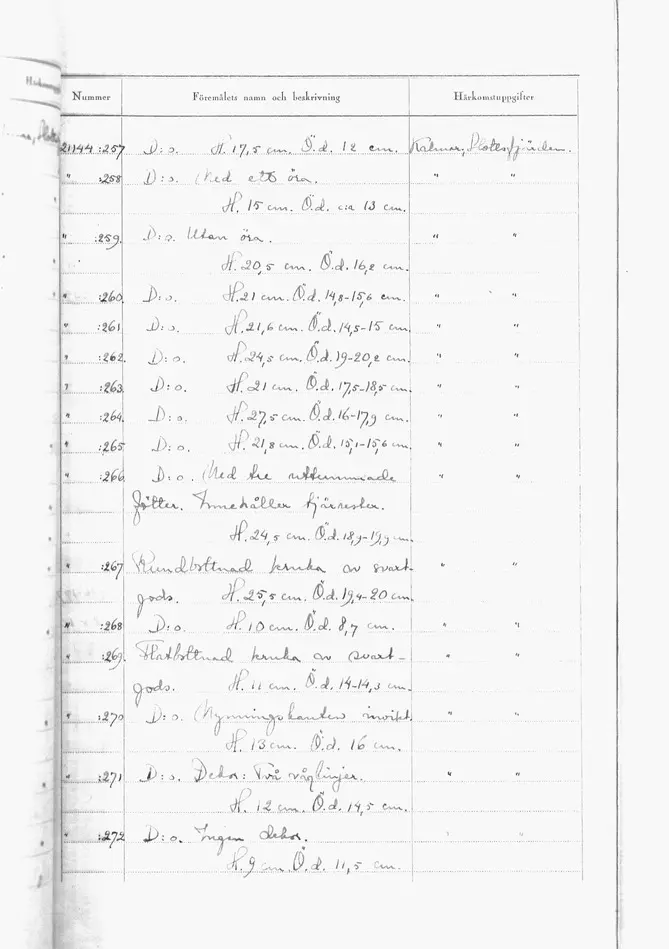 Nummer Föremålets namn och beskrivning Härkomstuppgifter
21144:257 D:o. H. 17,5 cm. Ö.d. 12 cm. Kalmar, Slottsfjärden.
" :258 D:o. Med ett öra. " "
H. 15 cm. Ö.d. c:a 13 cm.
" :259. D:o. Utan öra. " "
H. 20,5 cm. Ö.d. 16,2 cm.
" :260. D:o. H. 21 cm. Ö.d. 14,8-15,6 cm. " "
" :261 D:o. H. 21,6 cm. Ö.d. 14,5-15 cm. " "
" :262. D:o. H. 24,5 cm. Ö.d. 19-20,2 cm. " "
" :263. D:o. H. 21 cm. Ö.d. 17,5-18,5 cm. " "
" :264. D:o. H. 27,5 cm. Ö.d. 16-17,9 cm. " "
" :265 D:o. H. 21,8 cm. Ö.d. 15,1-15,6 cm. " "
" :266. D:o. Med tre uttummade " "
fötter. Innehåller tjärrester.
H. 24,5 cm. Ö.d. 18,9-19,9 cm.
" :267 Rundbottnad kruka av svart- " "
gods. H. 25,5 cm. Ö.d. 19,4-20 cm.
" :268 D:o. H. 10 cm. Ö.d. 8,7 cm. " "
" :269. Flatbottnad kruka av svart- " "
gods. H. 11 cm. Ö.d. 14-14,3 cm.
" :270 D:o. Mynningskanten invikt. " "
H. 13 cm. Ö.d. 16 cm.
" :271 D:o. Dekor: Två våglinjer. " "
H. 12 cm. Ö.d. 14,5 cm.
" :272 D:o. Ingen dekor. " "
H. 9 cm. Ö.d. 11,5 cm.